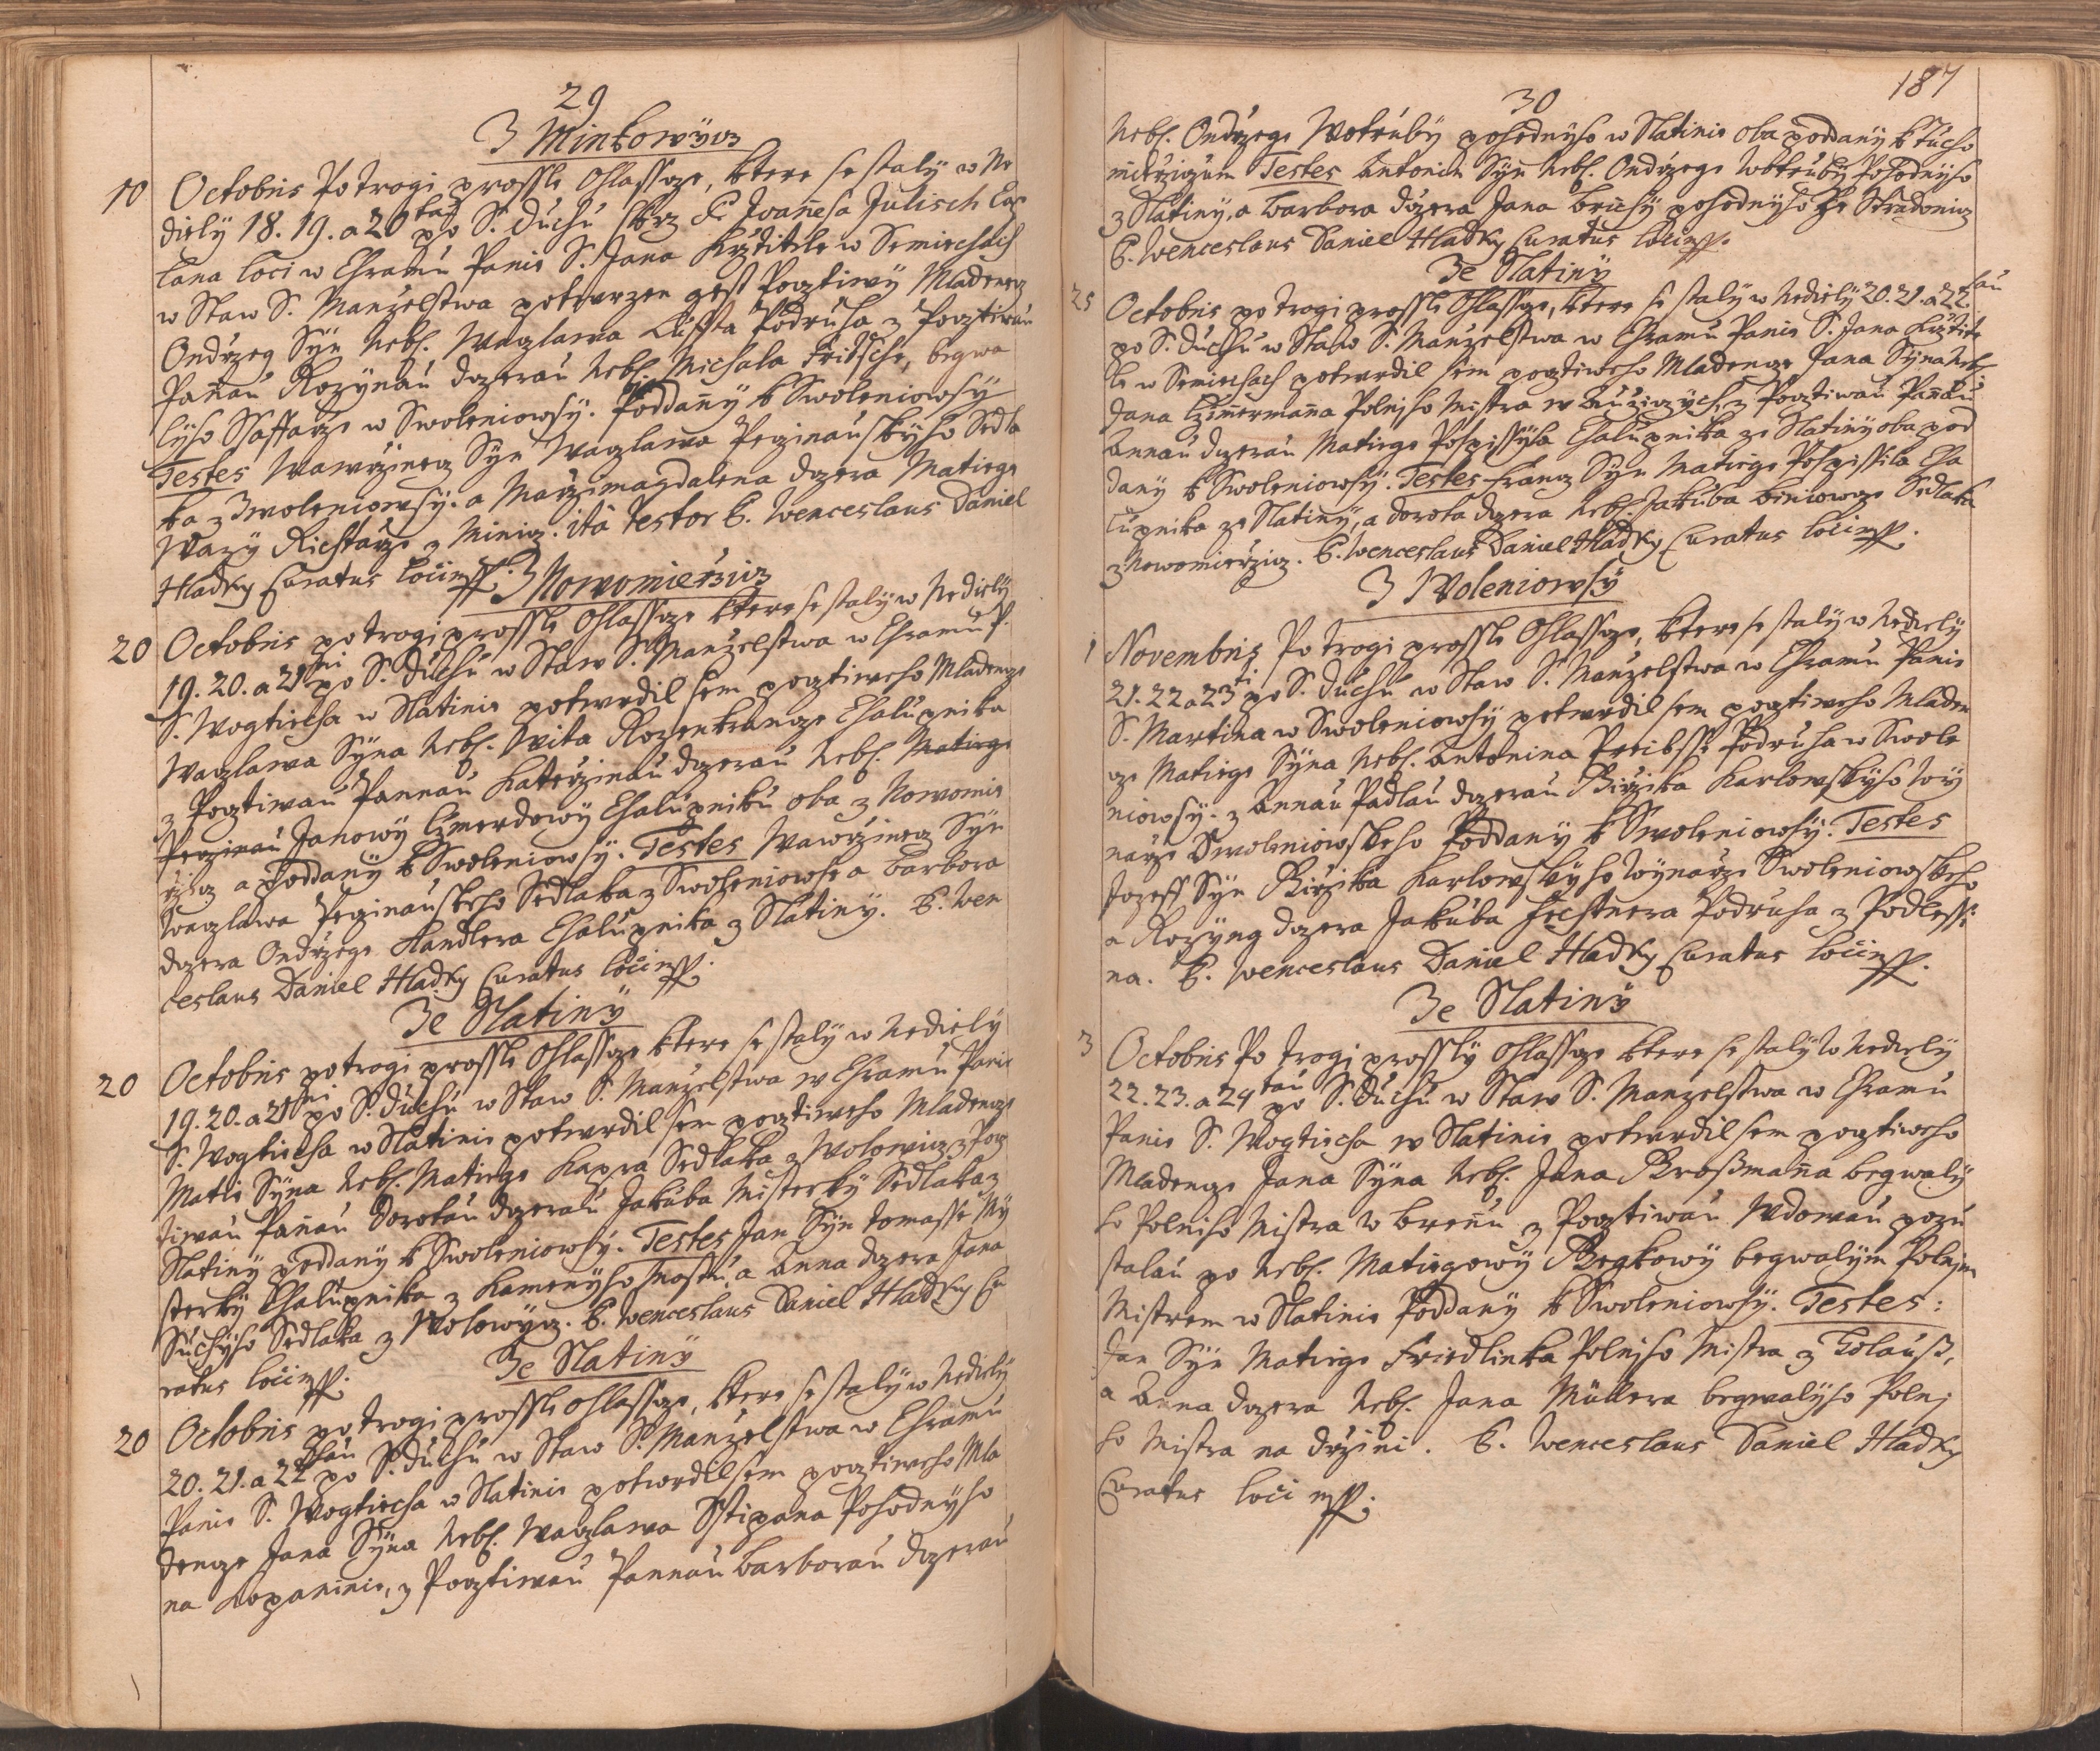 29
Z Minkowycz
10 Octobris Po trogi prossle Ohlassce, ktere se staly w Ne
diely 18. 19. a 20tau po S. Duchu skrz P. Joannesa Julisch Cap
lana loci w Chramu Panie S. Jana Krztitele w Semiechach
w Staw S. Manzelstwa potwrzen gest Pocztiwy Mladenecz
Ondrzeg Syn Nebl. Waczlawa Podruha z Pocztiwau
Pannau Rozynau dczerau Nebl. Michala Fritsche, begwa
lyho Ssaffarze w Swoleniowsy. Poddany k Swoleniowsy
Testes Wawrzinecz Syn Waczlawa Peczinauskyho Sedla
ka z Zwoleniowsy. a Marzimagdalena dczera Matiege
Wazy Richtarze z Miniz. ità Testor P. Wenceslaus Daniel
Hladky Curatus loci mpp.
Z Nowomierzicz
20 Octobris po trogi prossle Ohlassce ktere se staly w Nediely
19. 20. a 21ni po S. Duchu w Staw S. Manzelstwa w Chramu P.
S. Wogtiecha w Slatinie potwrdil sem pocztiweho Mladencze
Waczlawa Syna Nebl. Wita Rozenkrancze Chalupnika
z Pocztiwau Pannau Katerzinau dczerau Nebl. Matiege
Janowy Chalupniku oba z Nowomie
rzicz a poddany k Swoleniowsy. Testes Wawrzinecz Syn
Waczlawa Peczinauskeho Sedlaka z Swoleniowse a Barbora
dczera Ondrzege Handlera Chalupnika z Slatiny. P. Wen
ceslaus Daniel Hladky Curatus loci mpp.
Ze Slatiny
20 Octobris po trogi prossle Ohlassce ktere se staly w Nediely
19. 20. a 21ni po S. Duchu w Staw S. Manzelstwa w Chramu Panie
S. Wogtiecha w Slatinie potwrdil sem pocztiweho Mladencze
Matie Syna Nebl. Matiege Kapra Sedlaka z Wolowicz z Pocz
tiwau Pannau Dorotau dczerau Jakuba Misterky Sedlaka z
Slatiny poddany k Swoleniowsy. Testes Jan Syn Tomasse My
sterky Chalupnika z Kamenyho Mostu, a Anna dczera Jana
Suchyho Sedlaka z Wolowycz. P. Wenceslaus Daniel Hladky Cu
ratus loci mpp.
Ze Slatiny
20 Octobris po trogi prossle Ohlassce, ktere se staly w Nediely
20. 21. a 22hau po S. Duchu w Staw S. Manzelstwa w Chramu
Panie S. Wogtiecha w Slatinie potwrdil sem pocztiweho Mla
dencze Jana Syna Nebl. Waczlawa Sstipana Pohodnyho
na Kopaninie, z Pocztiwau Pannau Barborau dczerau
187
30
Nebl. Ondrzege Wotruby pohodnyho w Slatinie oba poddany k Tucho
mierziczum Testes Antonin Syn Nebl. Ondrzege Wotruby Pohodnyho
z Slatiny, a Barbora dczera Jana pohodnyho ze Stradonicz
P. Wenceslaus Daniel Hladky Curatus loci mpp.
Ze Slatiny
25 Octobris po trogi prossle Ohlassce, ktere se staly w Nediely 20. 21. a 22hau
po S. Duchu w Staw S. Manzelstwa w Chramu Panie S. Jana Krztite
le w Semiechach potwrdil sem pocztiweho Mladencze Jana Syna Nebl.
Jana Czimmermanna Polniho Mistra w z Pocztiwau Pannau
Annau dczerau Matiege Pospissyla Chalupnika ze Slatiny oba pod
dany k Swoleniowsy. Testes Francz Syn Matiege Pospissila Cha
lupnika ze Slatiny, a Dorota dczera Nebl. Jakuba Sedlaka
z Nowomierzicz. P. Wenceslaus Daniel Hladky Curatus loci mpp.
Z Woleniowsy
1 Novembris Po trogi prossle Ohlassce, ktere se staly w Nediely
21. 22 a 23ti po S. Duchu w Staw S. Manzelstwa w Chramu Panie
S. Martina w Swoleniowsy potwrdil sem pocztiweho Mladen
cze Matiege Syna Nebl. Antonina Podruha w Swole
niowsy. z Annau Padlau dczerau Girzika Karlowskyho Woy
narze Swoleniowskeho Poddany k Swoleniowsy. Testes
Jozeff Syn Girzika Karlowskyho Wynarze Swoleniowskeho
a Rozyna dczera Jakuba Podruha z Podlessi
na. P. Wenceslaus Daniel Hladky Curatus loci mpp.
Ze Slatiny
3 Octobris Po trogi prossly Ohlassce ktere se staly w Nediely
22. 23. a 24tau po S. Duchu w Staw S. Manzelstwa w Chramu
Panie S. Wogtiecha w Slatinie potwrdil sem pocztiweho
Mladencze Jana Syna Nebl. Jana Großmanna begwaly
ho Polniho Mistra w z Pocztiwau Wdowau pozu
stalau po Nebl. Matiegowy begwalym Polnim
Mistrem w Slatinie Poddany k Swoleniowsy. Testes:
Jan Syn Matiege Friedlinka Polniho Mistra z
a Anna dczera Nebl. Jana Müllera begwalyho Polni
ho Mistra na Drzini. P. Wenceslaus Daniel Hladky
Curatus loci mpp.